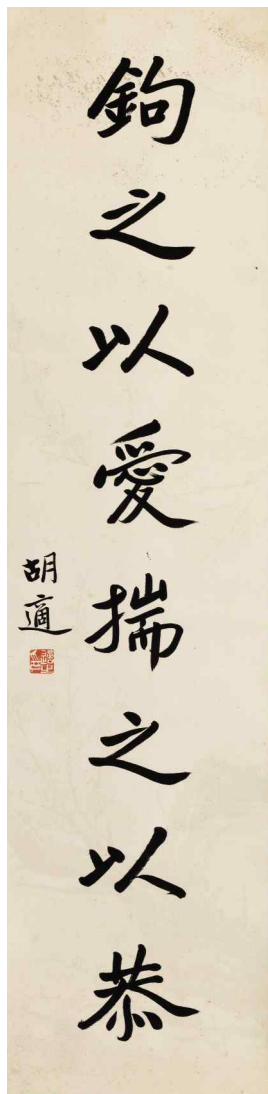 鉤之以愛揣之以恭
胡適